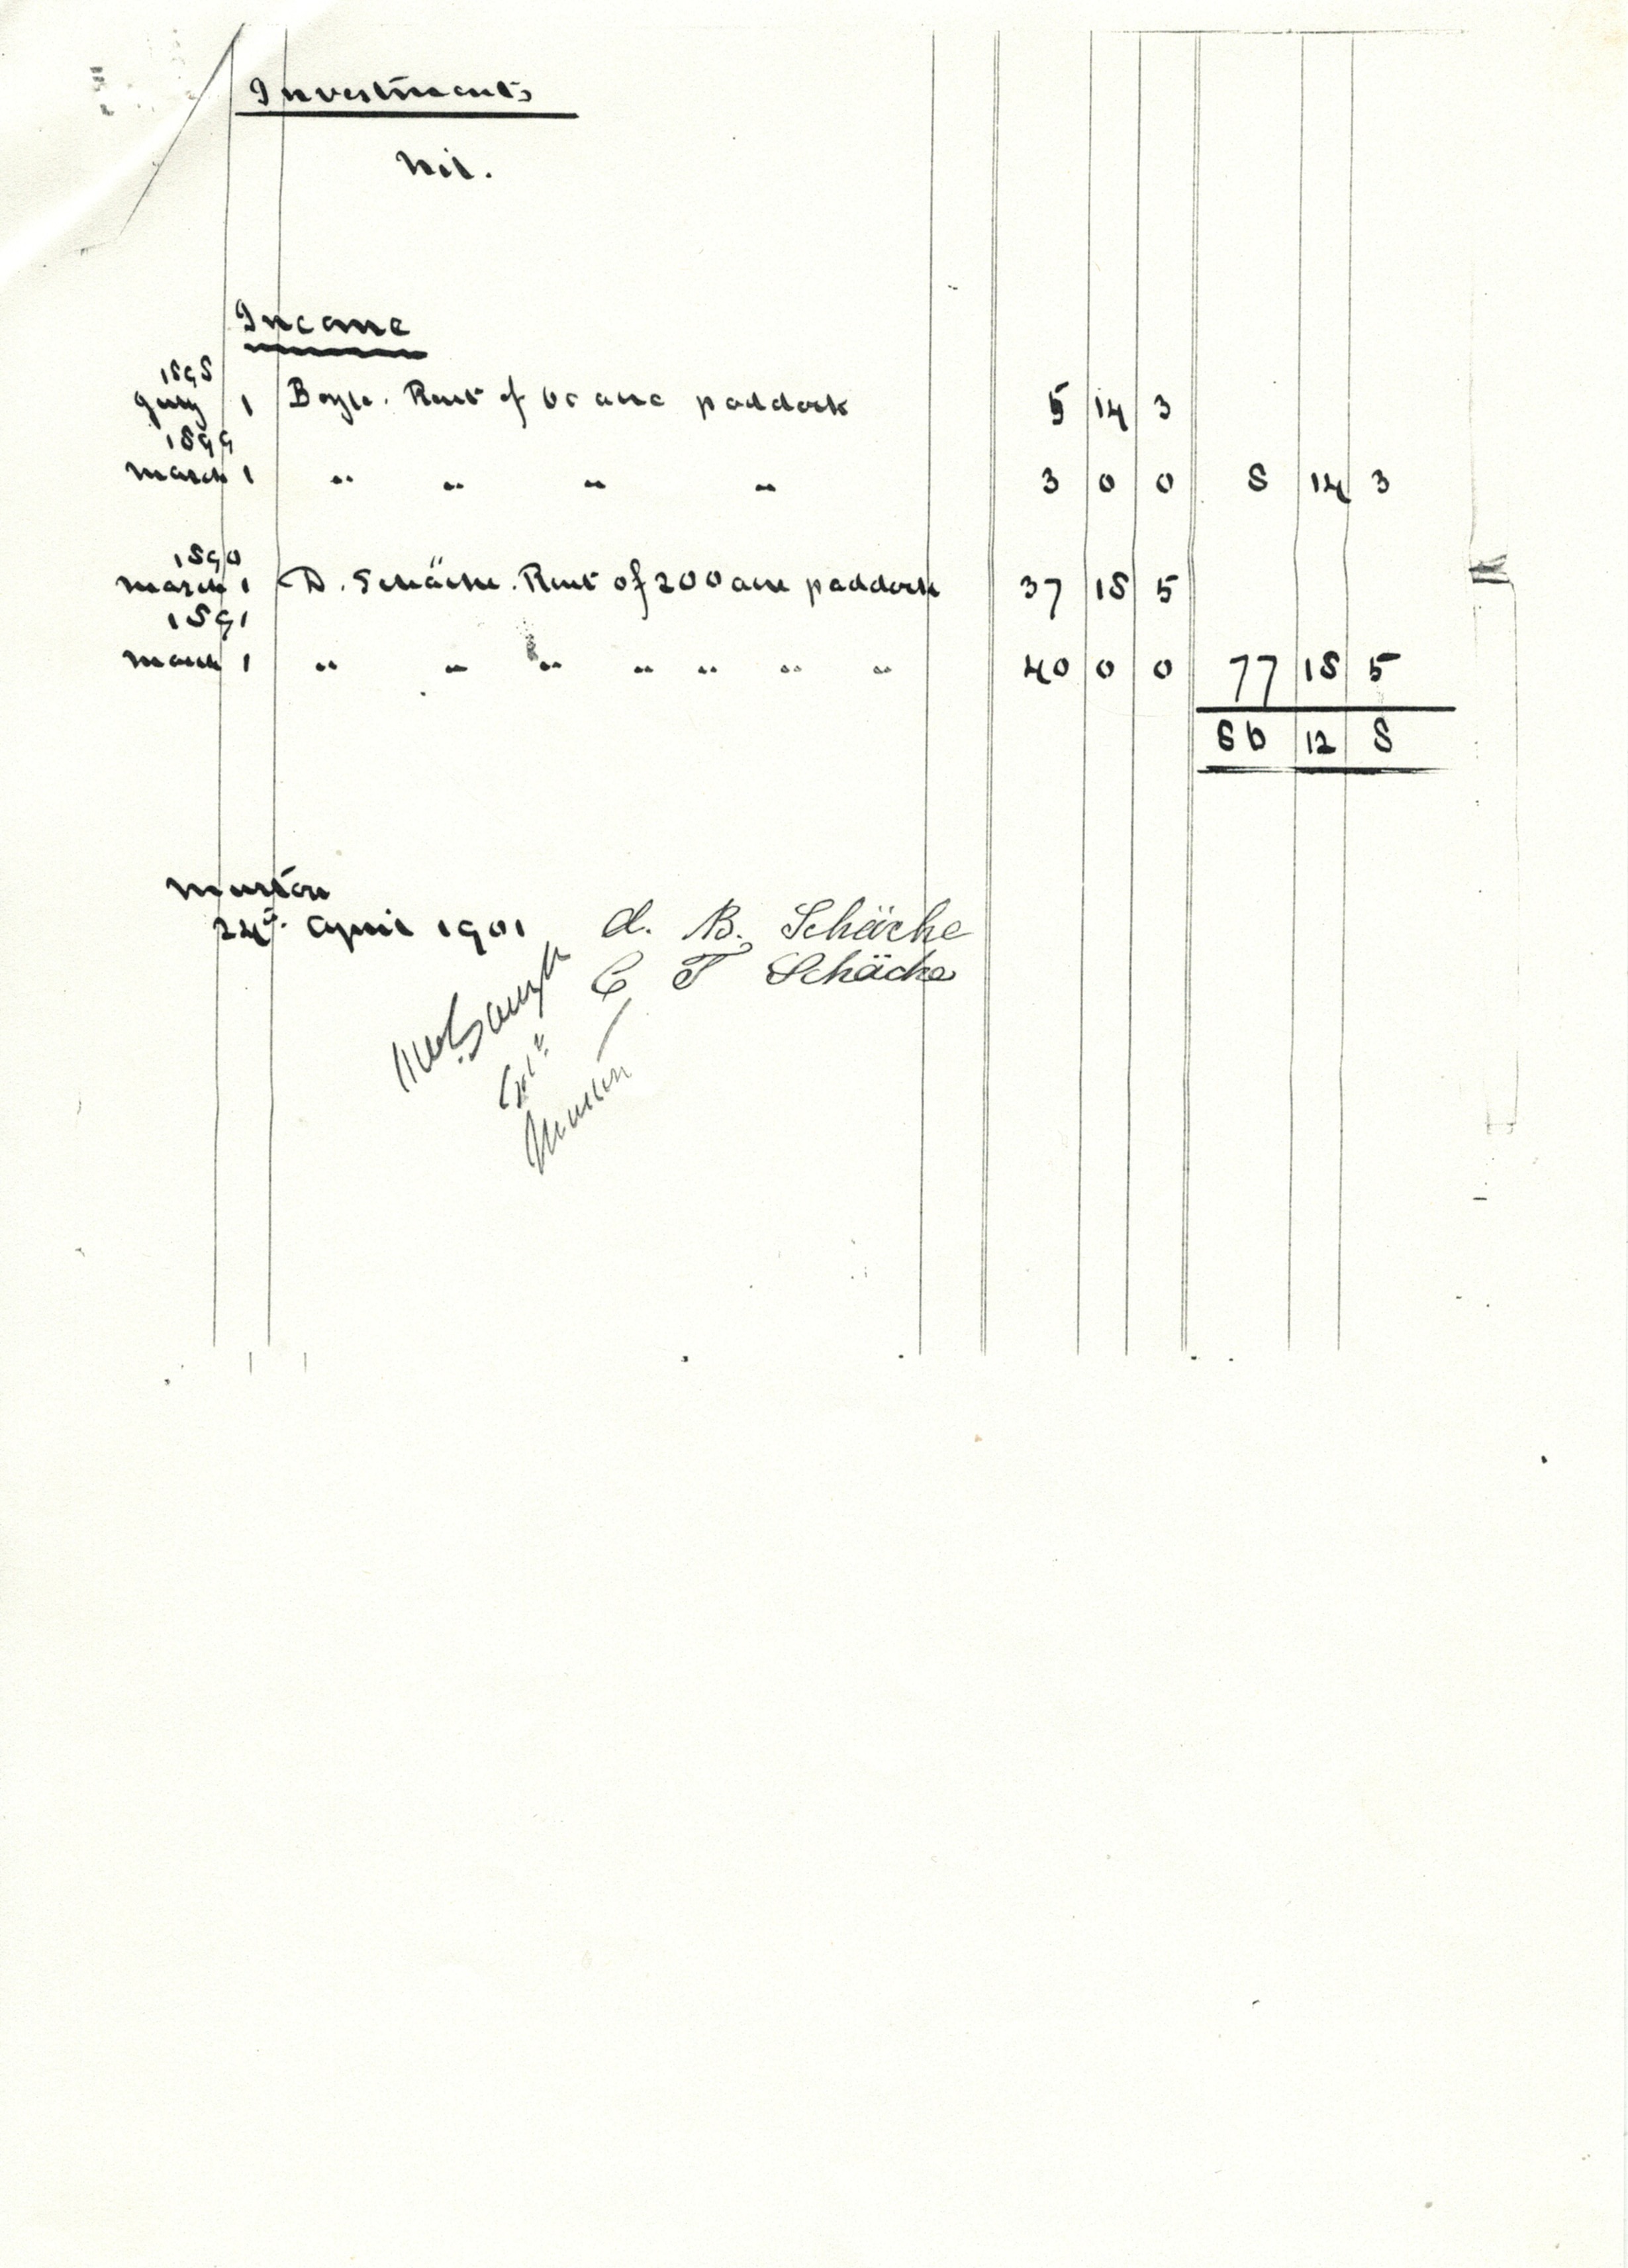 Investments
Nil.
Income
1898
July 1 Boyle. Rent of 60 acre paddock 5 14 3
1899
March 1 " " " " 3 0 0 8 14 3
1890
March 1 D. Schäche. Rent of 200 acre paddock 37 18 5
1891
March 1 " " " " " " " 40 0 0 77 18 5
86 12 8
Murtoa
24th April 1901 A. B. Schäche
C T Schäche
Murtoa